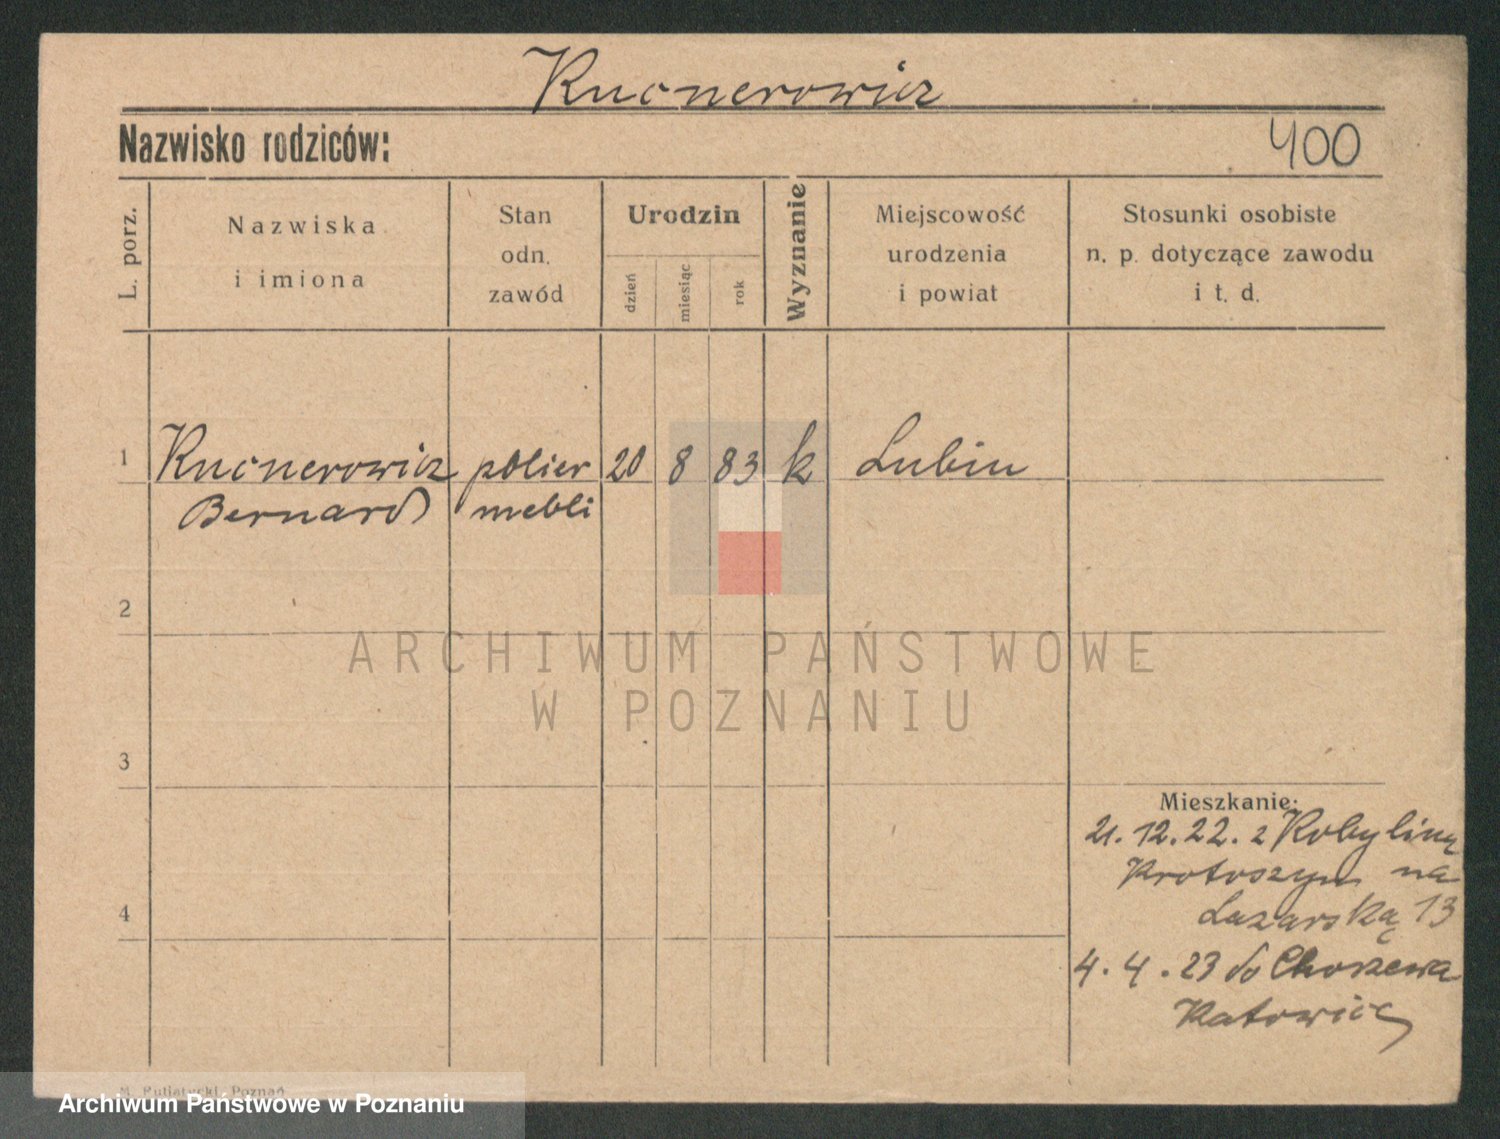 Kucnerowicz
Nazwisko rodziców:
400
L. porz.
Nazwiska
i imiona
Stan
odn.
zawód
Urodzin
dzień
miesiąc
rok
Wyznanie
Miejscowość
urodzenia
i powiat
Stosunki osobiste
n. p. dotyczące zawodu
i t. d.
1 Kucnerowicz polier 20 8 83 k Lubiń
Bernard mebli
2
ARCHIWUM PAŃSTWOWE
W POZNANIU
3
Mieszkanie:
21.12.22. z Kobylina
Krotoszyn na
Łazarską 13
4
4.4.23 do
Katowice
M. Putiatycki, Poznań
Archiwum Państwowe w Poznaniu